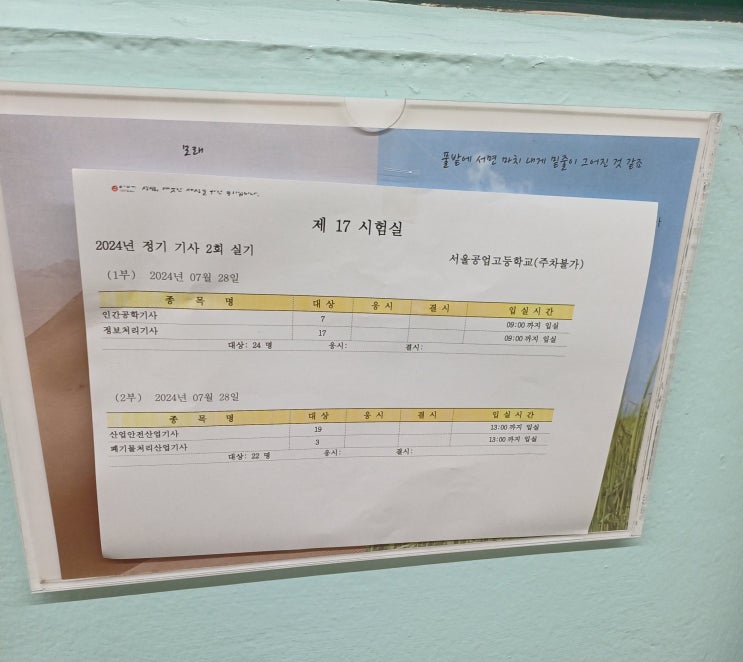 모래
풀밭에 서면 마치 내게 밑줄이 그어진 것 같죠
제 17 시험실
2024년 정기 기사 2회 실기
서울공업고등학교(주차불가)
(1부) 2024년 07월 28일
종 목 명 대 상 응 시 결 시 입 실 시 간
인간공학기사 7 09:00 까지 입실
정보처리기사 17 09:00 까지 입실
대상: 24 명 응시: 결시:
(2부) 2024년 07월 28일
종 목 명 대 상 응 시 결 시 입 실 시 간
산업안전산업기사 19 13:00 까지 입실
폐기물처리산업기사 3 13:00 까지 입실
대상: 22 명 응시: 결시: